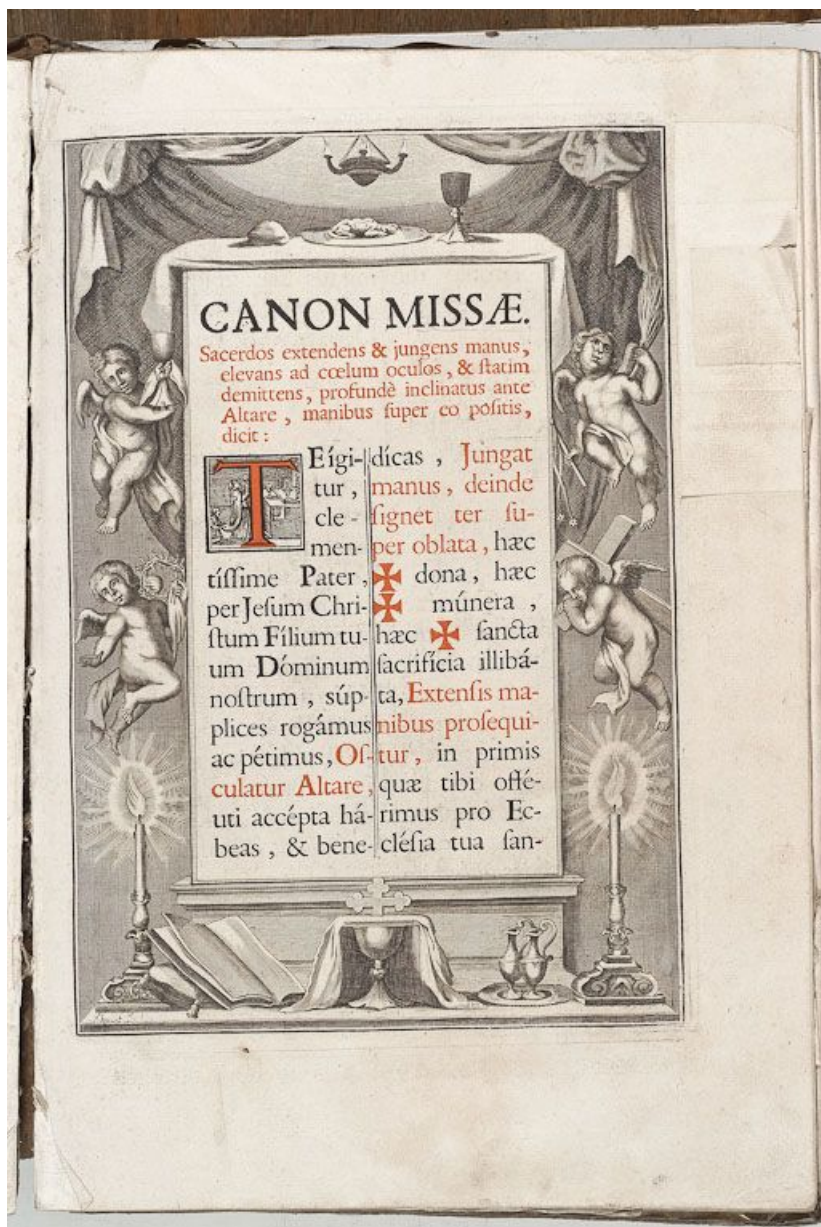 CANON MISSÆ.
Sacerdos extendens & jungens manus,
elevans ad cœlum oculos, & ſtatim
demittens, profundè inclinatus ante
Altare, manibus ſuper eo poſitis,
dicit:
TE ígi-
tur,
cle-
men-
tíſſime Pater,
per Jeſum Chri-
ſtum Fílium tu-
um Dóminum
noſtrum, ſúp-
plices rogámus
ac pétimus, Oſ-
culatur Altare,
uti accépta há-
beas, & bene-
dícas, Jungat
manus, deinde
ſignet ter ſu-
per oblata, hæc
✠ dona, hæc
✠ múnera,
hæc ✠ ſancta
ſacrifícia illibá-
ta, Extenſis ma-
nibus proſequi-
tur, in primis
quæ tibi offé-
rimus pro Ec-
cléſia tua ſan-